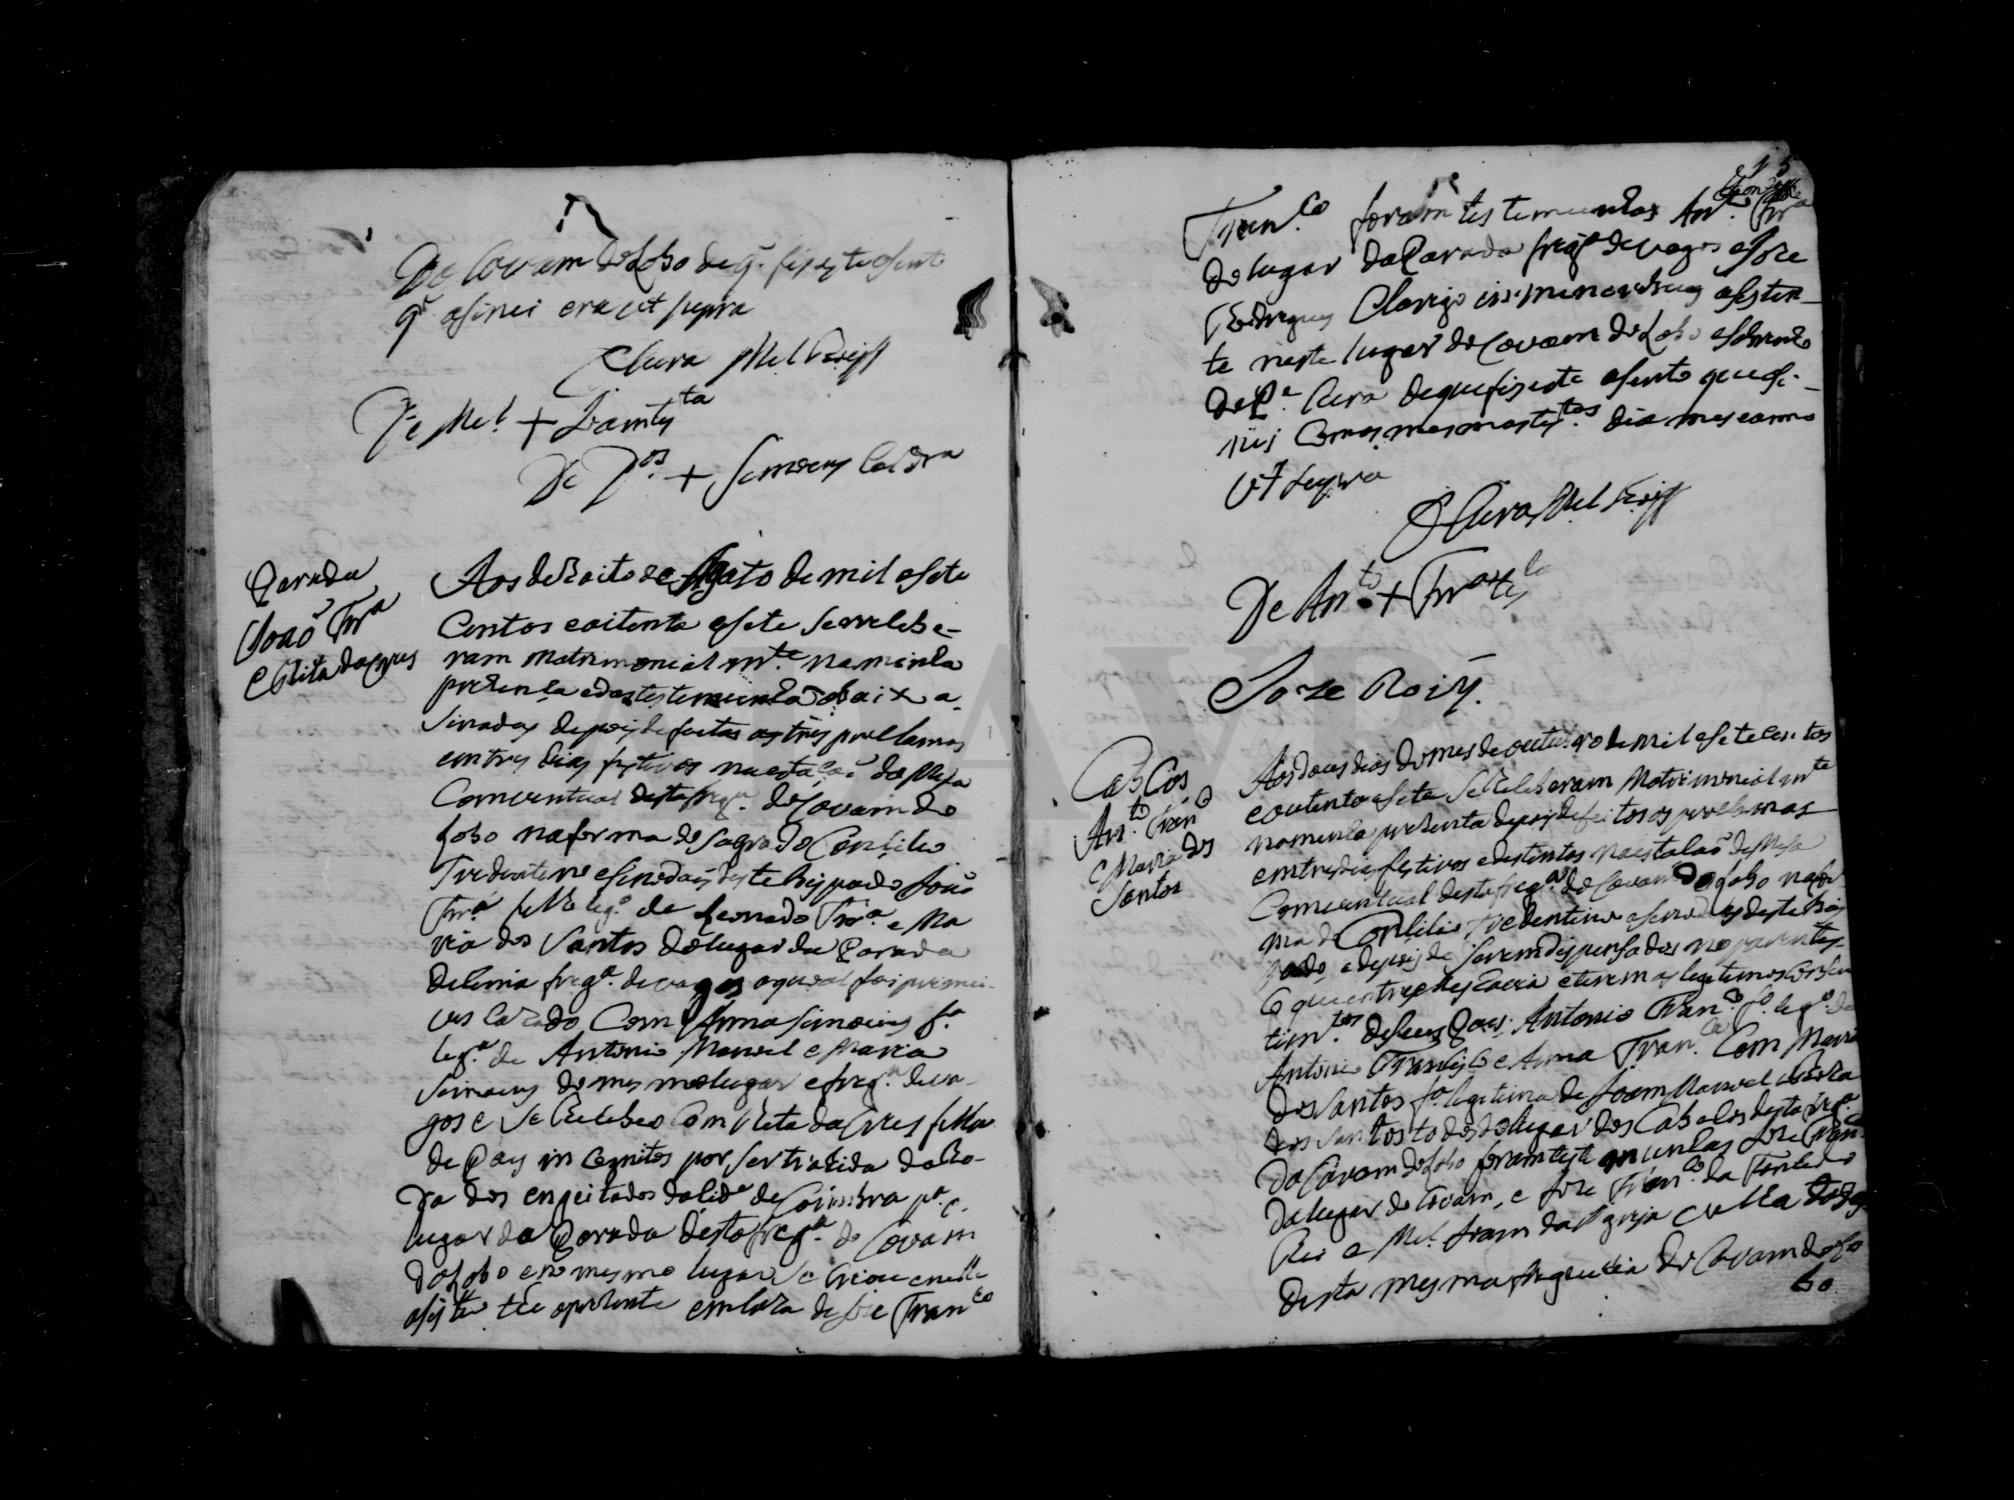 De Covam do Lobo de q. fis este asento
q. asinei era ut supra
O Cura Mel
De Mel + tta
De + Simoens Caldra
Parada
João Frra
e Rita da Crus
Aos dezaito de Agosto de mil e sete
Centos e oitenta e sete se cecelebe-
ram Matrimonial mte. na minha
prezenta e das testemunhas abaixo a-
sinadas depois de feitas as tres proclamas
em tres dias festivos na estação da Misa
Comventual desta frega. de Covam do
Lobo na forma do Sagrado Concilio
Tridentino e sinodais deste bispado João
Frra. filho lego. de Leonardo Frra. e Ma
ria dos Santos do lugar da Parada
de Sima frega. de vagos o qual foi primei-
ves Cazado Com Anna Simoens fa.
lega. de Antonio Manoel e Maria
Simoens do mesmo lugar e frega. de va-
gos e se celebrou Com Rita da Crus filha
de Pais incognitos por ser trazida da Ro-
da dos engeitados da Cide. de Coimbra pa. o
lugar da Parada desta frega. de Covam
do Lobo e no mesmo lugar se Criou e nelle
asistio the o prezente em Caza de Joze Franco
15
Franco. foram testemunhas Anto. Frra
do lugar da Parada frega. de vagos e Joze
Rodrigues Clerigo in minoribus asisten-
te neste lugar de Covam do Lobo
do Pe. Cura de que fis este asento que asi-
nei Com as mesmas testas. dia mes e anno
ut supra
O Cura Mel
De Anto. + Frra
Joze Rois.
Cabeços
Anto. Franco
e Maria dos
Santos
Aos dous dias do mes de outubro de mil e sete Centos
e outenta e sete se Celeberam Matrimonial mte
na minha prezenta depois de feitos os proclamas
em tres dias festivos e destintos na estação da Misa
Comventual desta frega. de Covam do Lobo na for
ma do Concilio Tredentino e sinodais deste Bis
pado e depois de serem despensados no parentes
Co que entre elles havia e terem os legitimos Consen
timtos. de seus Pais; Antonio Franco. fo. lego. de
Antonio Francisco e Anna Franca. Com Maria
dos Santos fa. legitima de Joam Manoel e
dos Santos todos do lugar dos Cabesos desta frega
da Covam do Lobo foram testemunhas Joze Franco
do lugar de Covam, e Joze Franco. da Fonte do
Rei e Mel. da Igreja e velha todos
desta mesma freguezia de Covam do Lo
bo